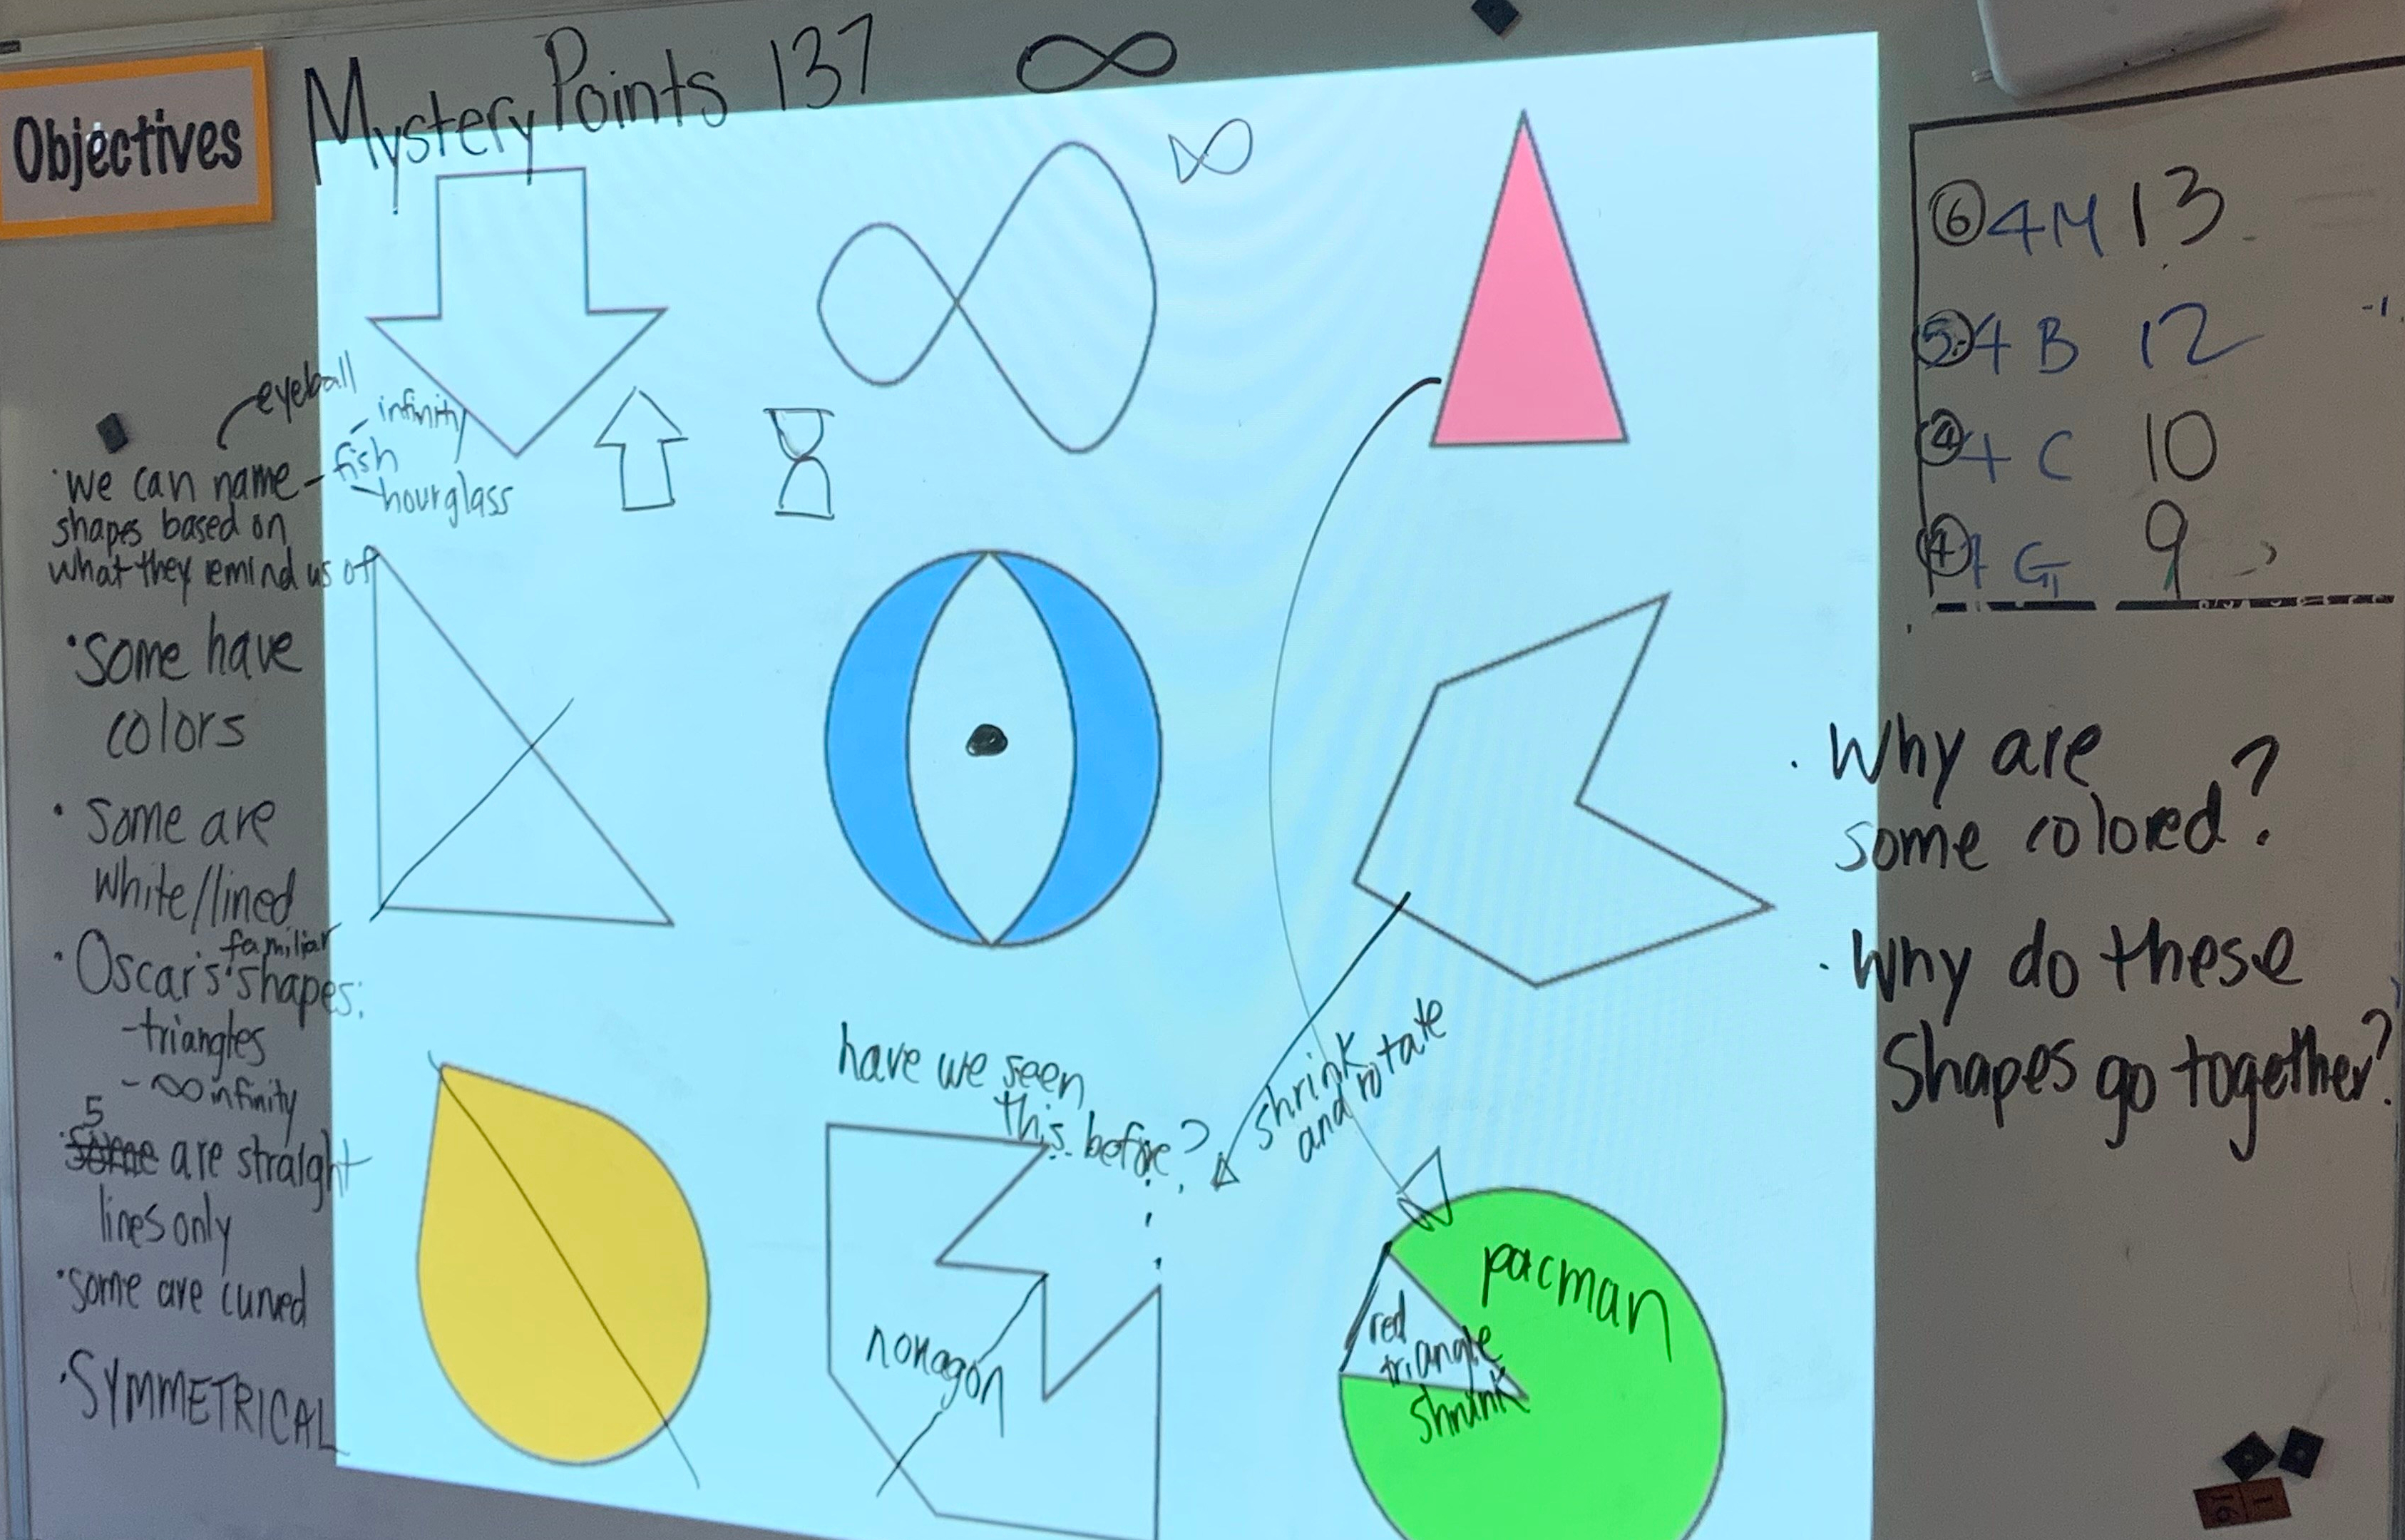 Objectives
Mystery Points 137 ∞
∞
eyeball
- infinity
· we can name - fish
- hourglass
shapes based on
what they remind us of
· Some have
colors
· Some are
white/lined
familiar
· Oscar's shapes:
- triangles
- ∞ infinity
5
· some are straight
lines only
· some are curved
· SYMMETRICAL
have we seen
this before?
shrink
and rotate
nonagon
pacman
red
triangle
shrink
⑥ 4M 13
⑤ 4 B 12 -1
④ 4 C 10
④ 4 G 9
· Why are
some colored?
· Why do these
Shapes go together?